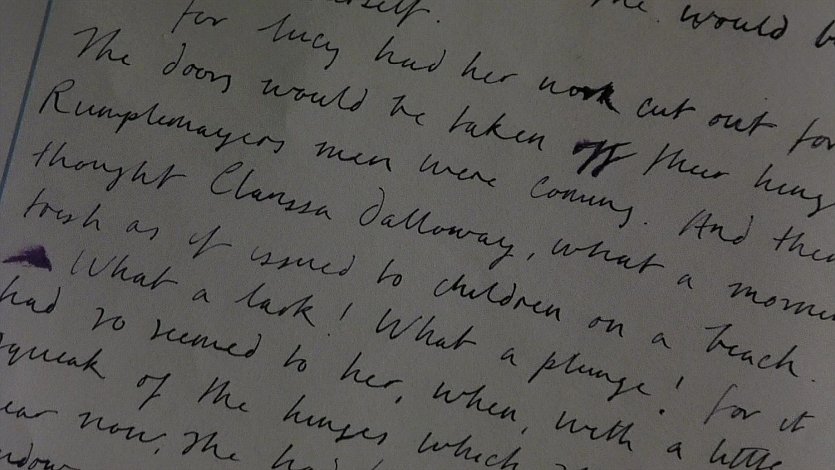 herself. The would b
for Lucy had her work cut out for
The doors would be taken off their hing
Rumplemayers men were coming. And then
thought Clarissa Dalloway, what a morni
fresh as if issued to children on a beach.
What a lark! What a plunge! For it
had so seemed to her, when, with a little
squeak of the hinges, which
ear now, she ha
ndow